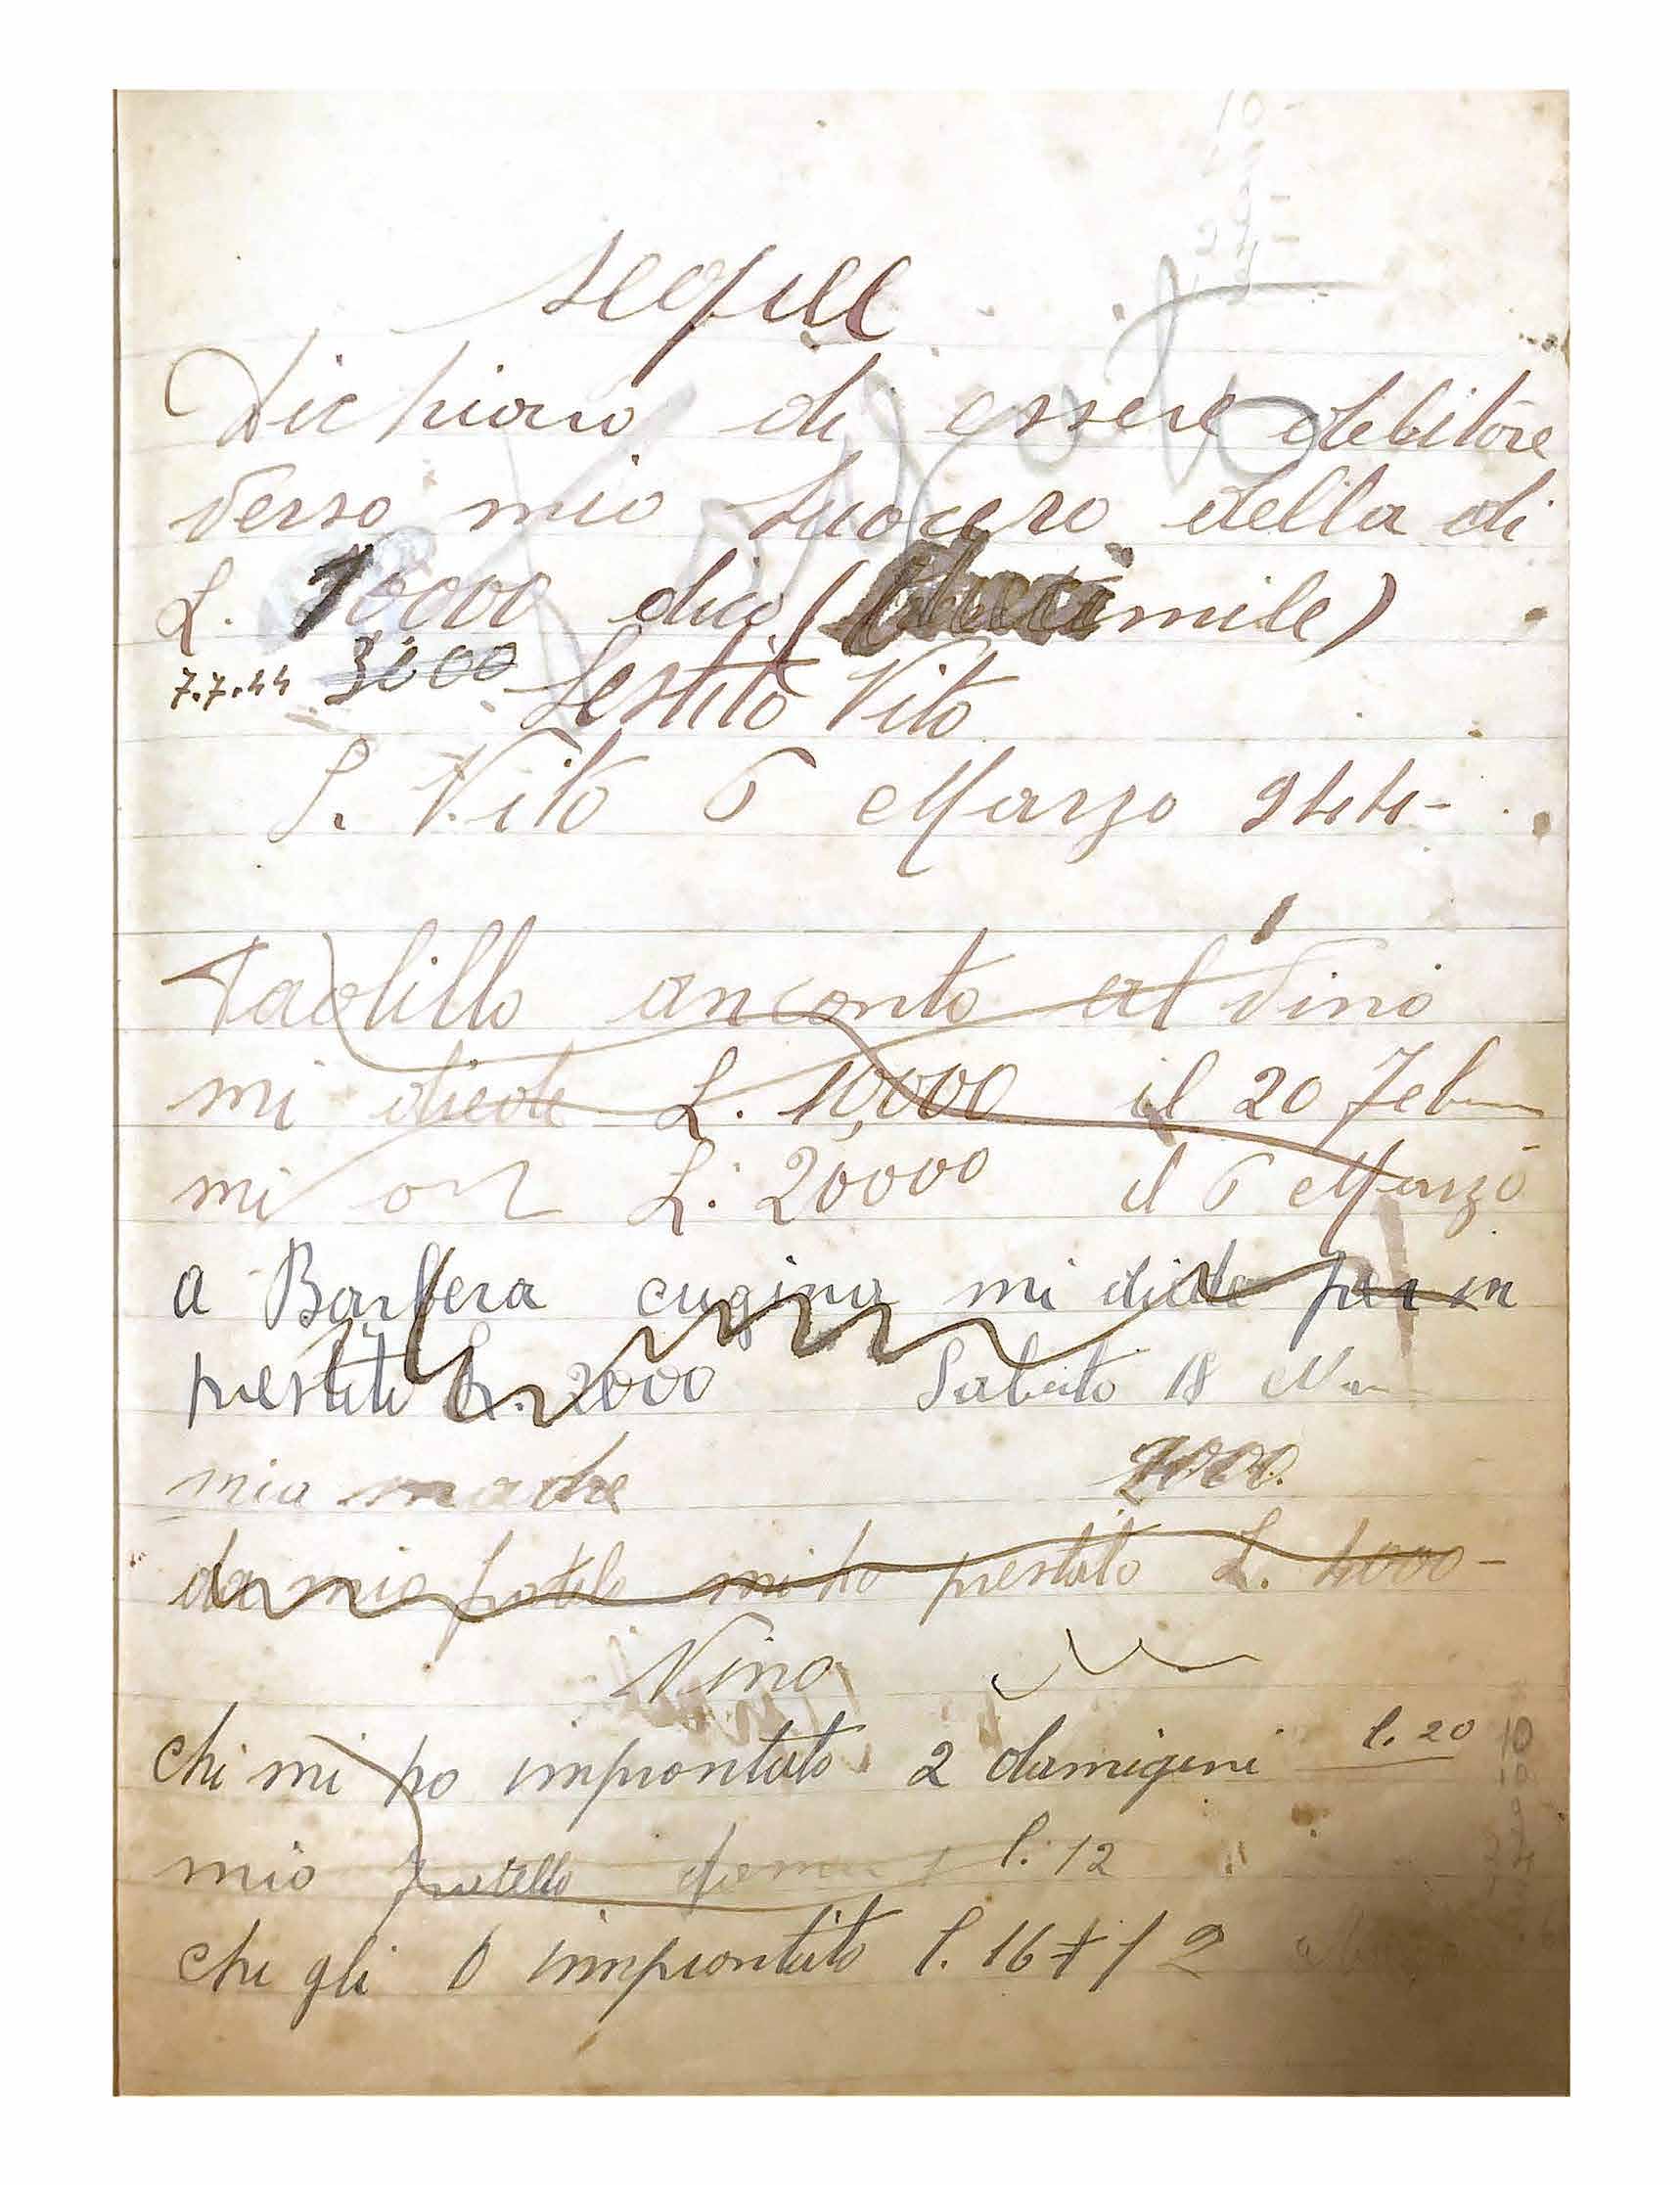 segue
Dichiaro di essere debitore
verso mio Suocero della di
L. 10000 dico ( mile)
7.7.44 3000 Sestito Vito
S. Vito 6 Marzo 944-
Paolillo anconto al vino
mi diede L. 10,000 il 20 Feb
mi L. 20000 il 6 Marzo
a Barbera cugina mi diede per in
prestito L. 2000 Sabato 18
mia madre 2000.
da mio fratelo mi ho prestato L. 4000-
Vino
chi mi ho improntato 2 damigini l. 20
mio fratello l. 12
che gli ò improntato l. 16 + 1 2